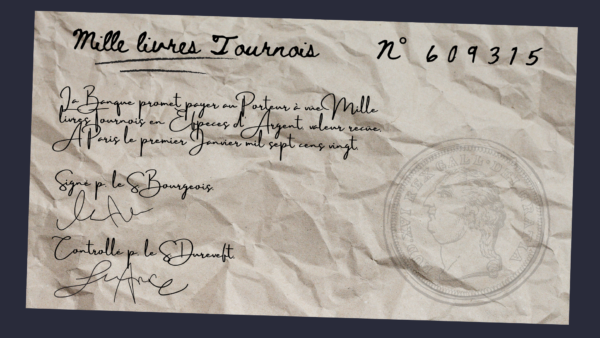 Mille livres Tournois
N° 609315
La Banque promet payer au Porteur à vue Mille
livres Tournois en Especes d'Argent, valeur recue.
A Paris le premier Janvier mil sept cens vingt.
Signé p. le S Bourgeois.
Controllé p. le S Durevest.